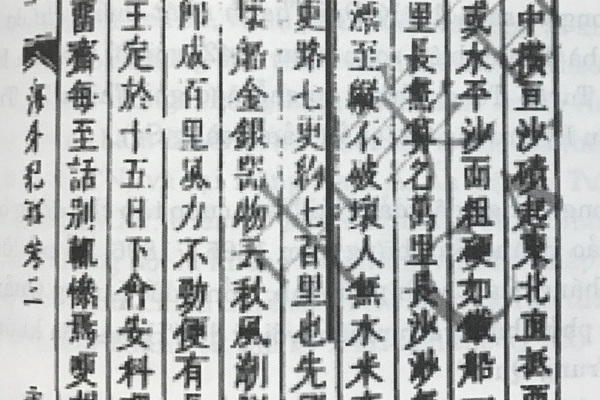 中橫亘沙磧起東北直抵西
或水平沙面粗硬如鐵船一
里長無算名萬里長沙渺無
漂至縱不破壞人無水米
路七更約七百里也先
船金銀器物云秋風潮
成百里風力不勁便有長
王定於十五日下會安料
舊齋每至話別輒焉更
海外紀事 卷三